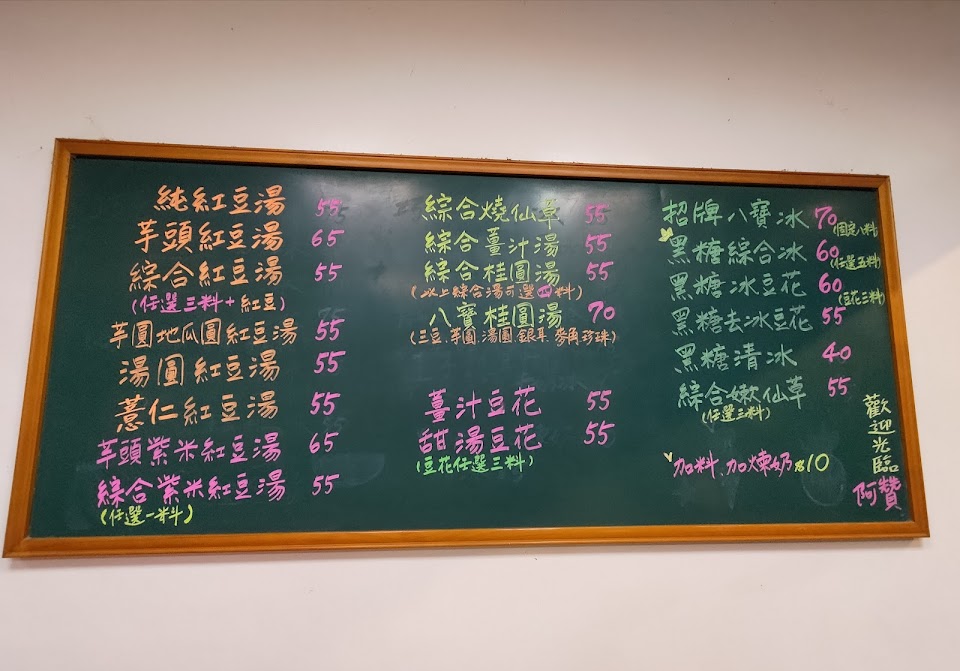 純紅豆湯 55
芋頭紅豆湯 65
綜合紅豆湯 55
(任選三料+紅豆)
芋圓地瓜圓紅豆湯 55
湯圓紅豆湯 55
薏仁紅豆湯 55
芋頭紫米紅豆湯 65
綜合紫米紅豆湯 55
(任選一料)
綜合燒仙草 55
綜合薑汁湯 55
綜合桂圓湯 55
(以上綜合湯可選四料)
八寶桂圓湯 70
(三豆.芋圓.湯圓.銀耳.麥角.珍珠)
薑汁豆花 55
甜湯豆花 55
(豆花任選三料)
招牌八寶冰 70
(固定八料)
黑糖綜合冰 60
(任選五料)
黑糖冰豆花 60
(豆花三料)
黑糖去冰豆花 55
黑糖清冰 40
綜合嫰仙草 55
(任選三料)
加料、加煉奶 10
歡迎光臨
阿贊